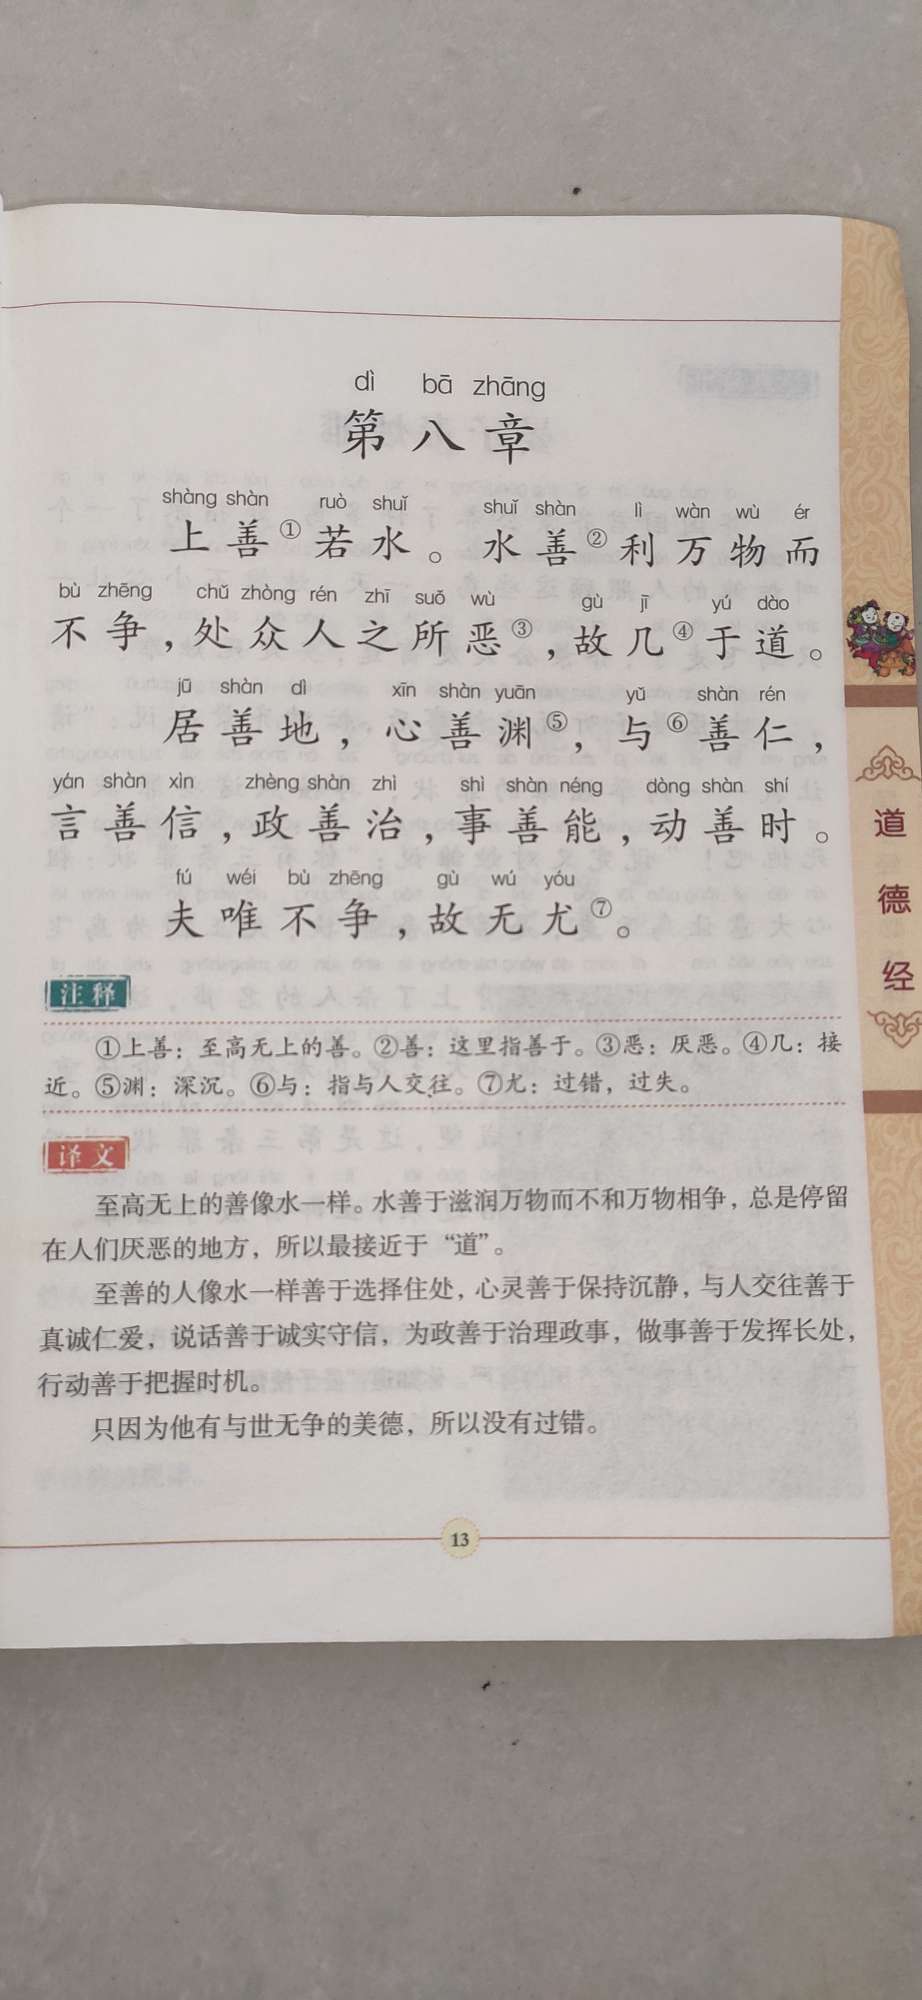 dì bā zhāng
第八章
shàng shàn ruò shuǐ shuǐ shàn lì wàn wù ér
上善①若水。水善②利万物而
bù zhēng chǔ zhòng rén zhī suǒ wù gù jī yú dào
不争,处众人之所恶③,故几④于道。
jū shàn dì xīn shàn yuān yǔ shàn rén
居善地,心善渊⑤,与⑥善仁,
yán shàn xìn zhèng shàn zhì shì shàn néng dòng shàn shí
言善信,政善治,事善能,动善时。
fú wéi bù zhēng gù wú yóu
夫唯不争,故无尤⑦。
注释
①上善:至高无上的善。②善:这里指善于。③恶:厌恶。④几:接
近。⑤渊:深沉。⑥与:指与人交往。⑦尤:过错,过失。
译文
至高无上的善像水一样。水善于滋润万物而不和万物相争,总是停留
在人们厌恶的地方,所以最接近于“道”。
至善的人像水一样善于选择住处,心灵善于保持沉静,与人交往善于
真诚仁爱,说话善于诚实守信,为政善于治理政事,做事善于发挥长处,
行动善于把握时机。
只因为他有与世无争的美德,所以没有过错。
13
道德经